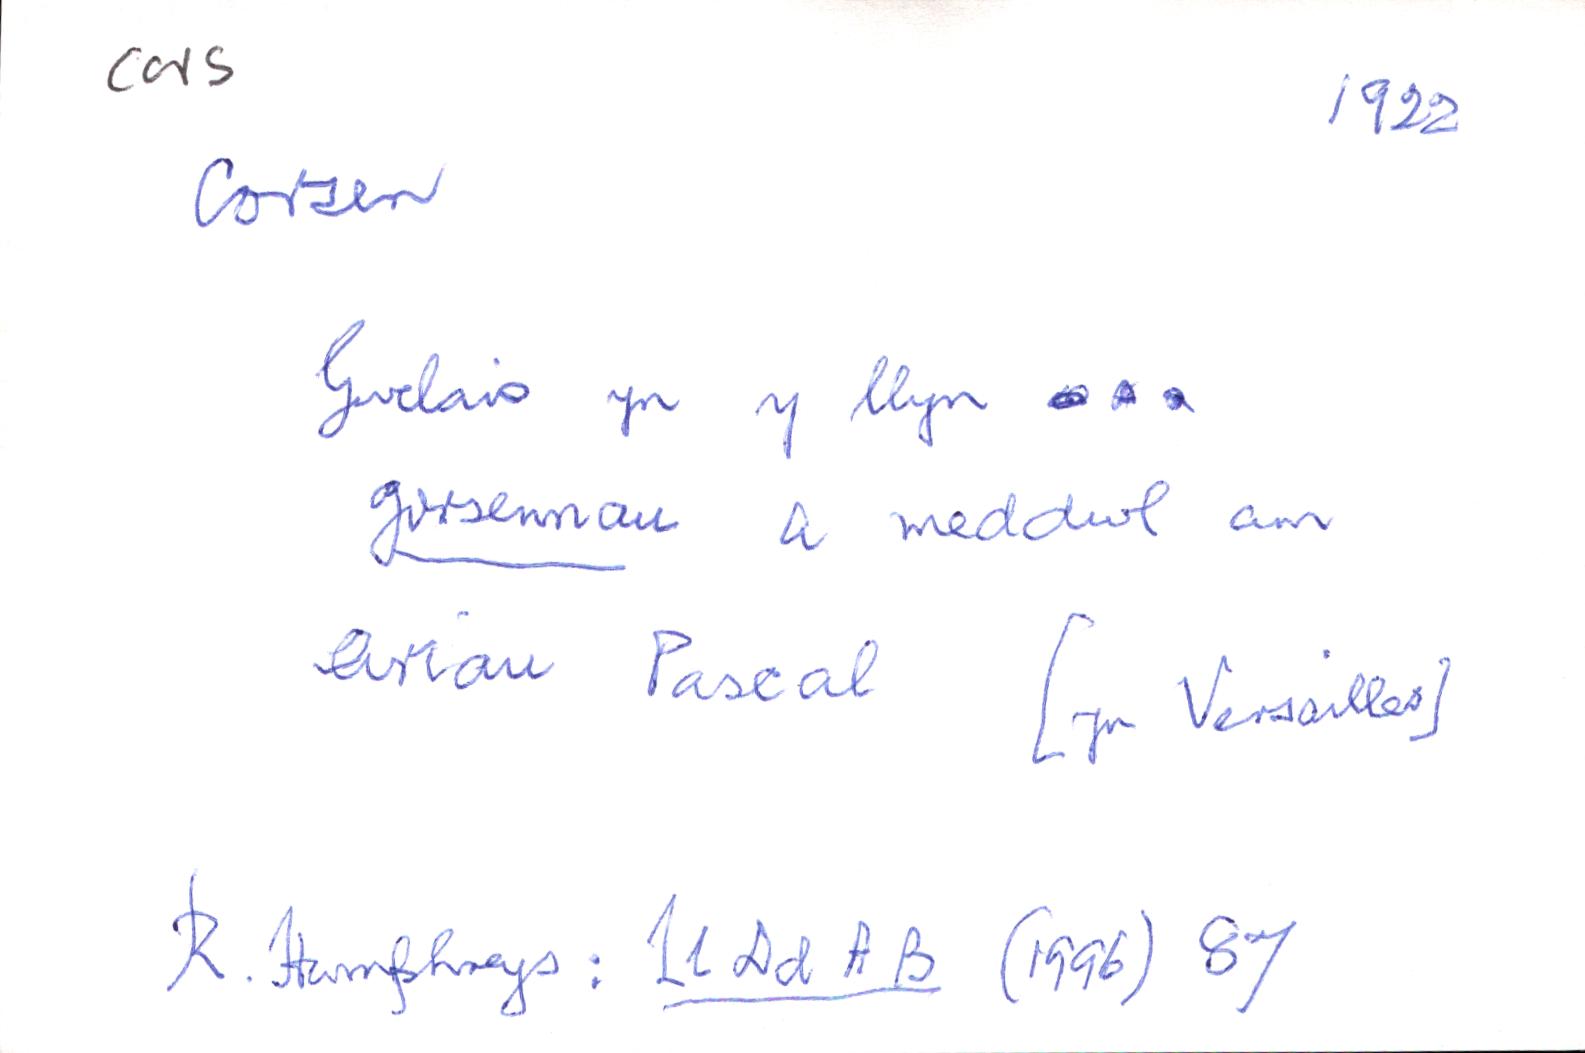 cors
1922
Corsen
Gwelais yn y llyn ...
gorsennau a meddwl am
eiriau Pascal [yn Versailles]
R. Humphreys: Ll Dd A B (1996) 87